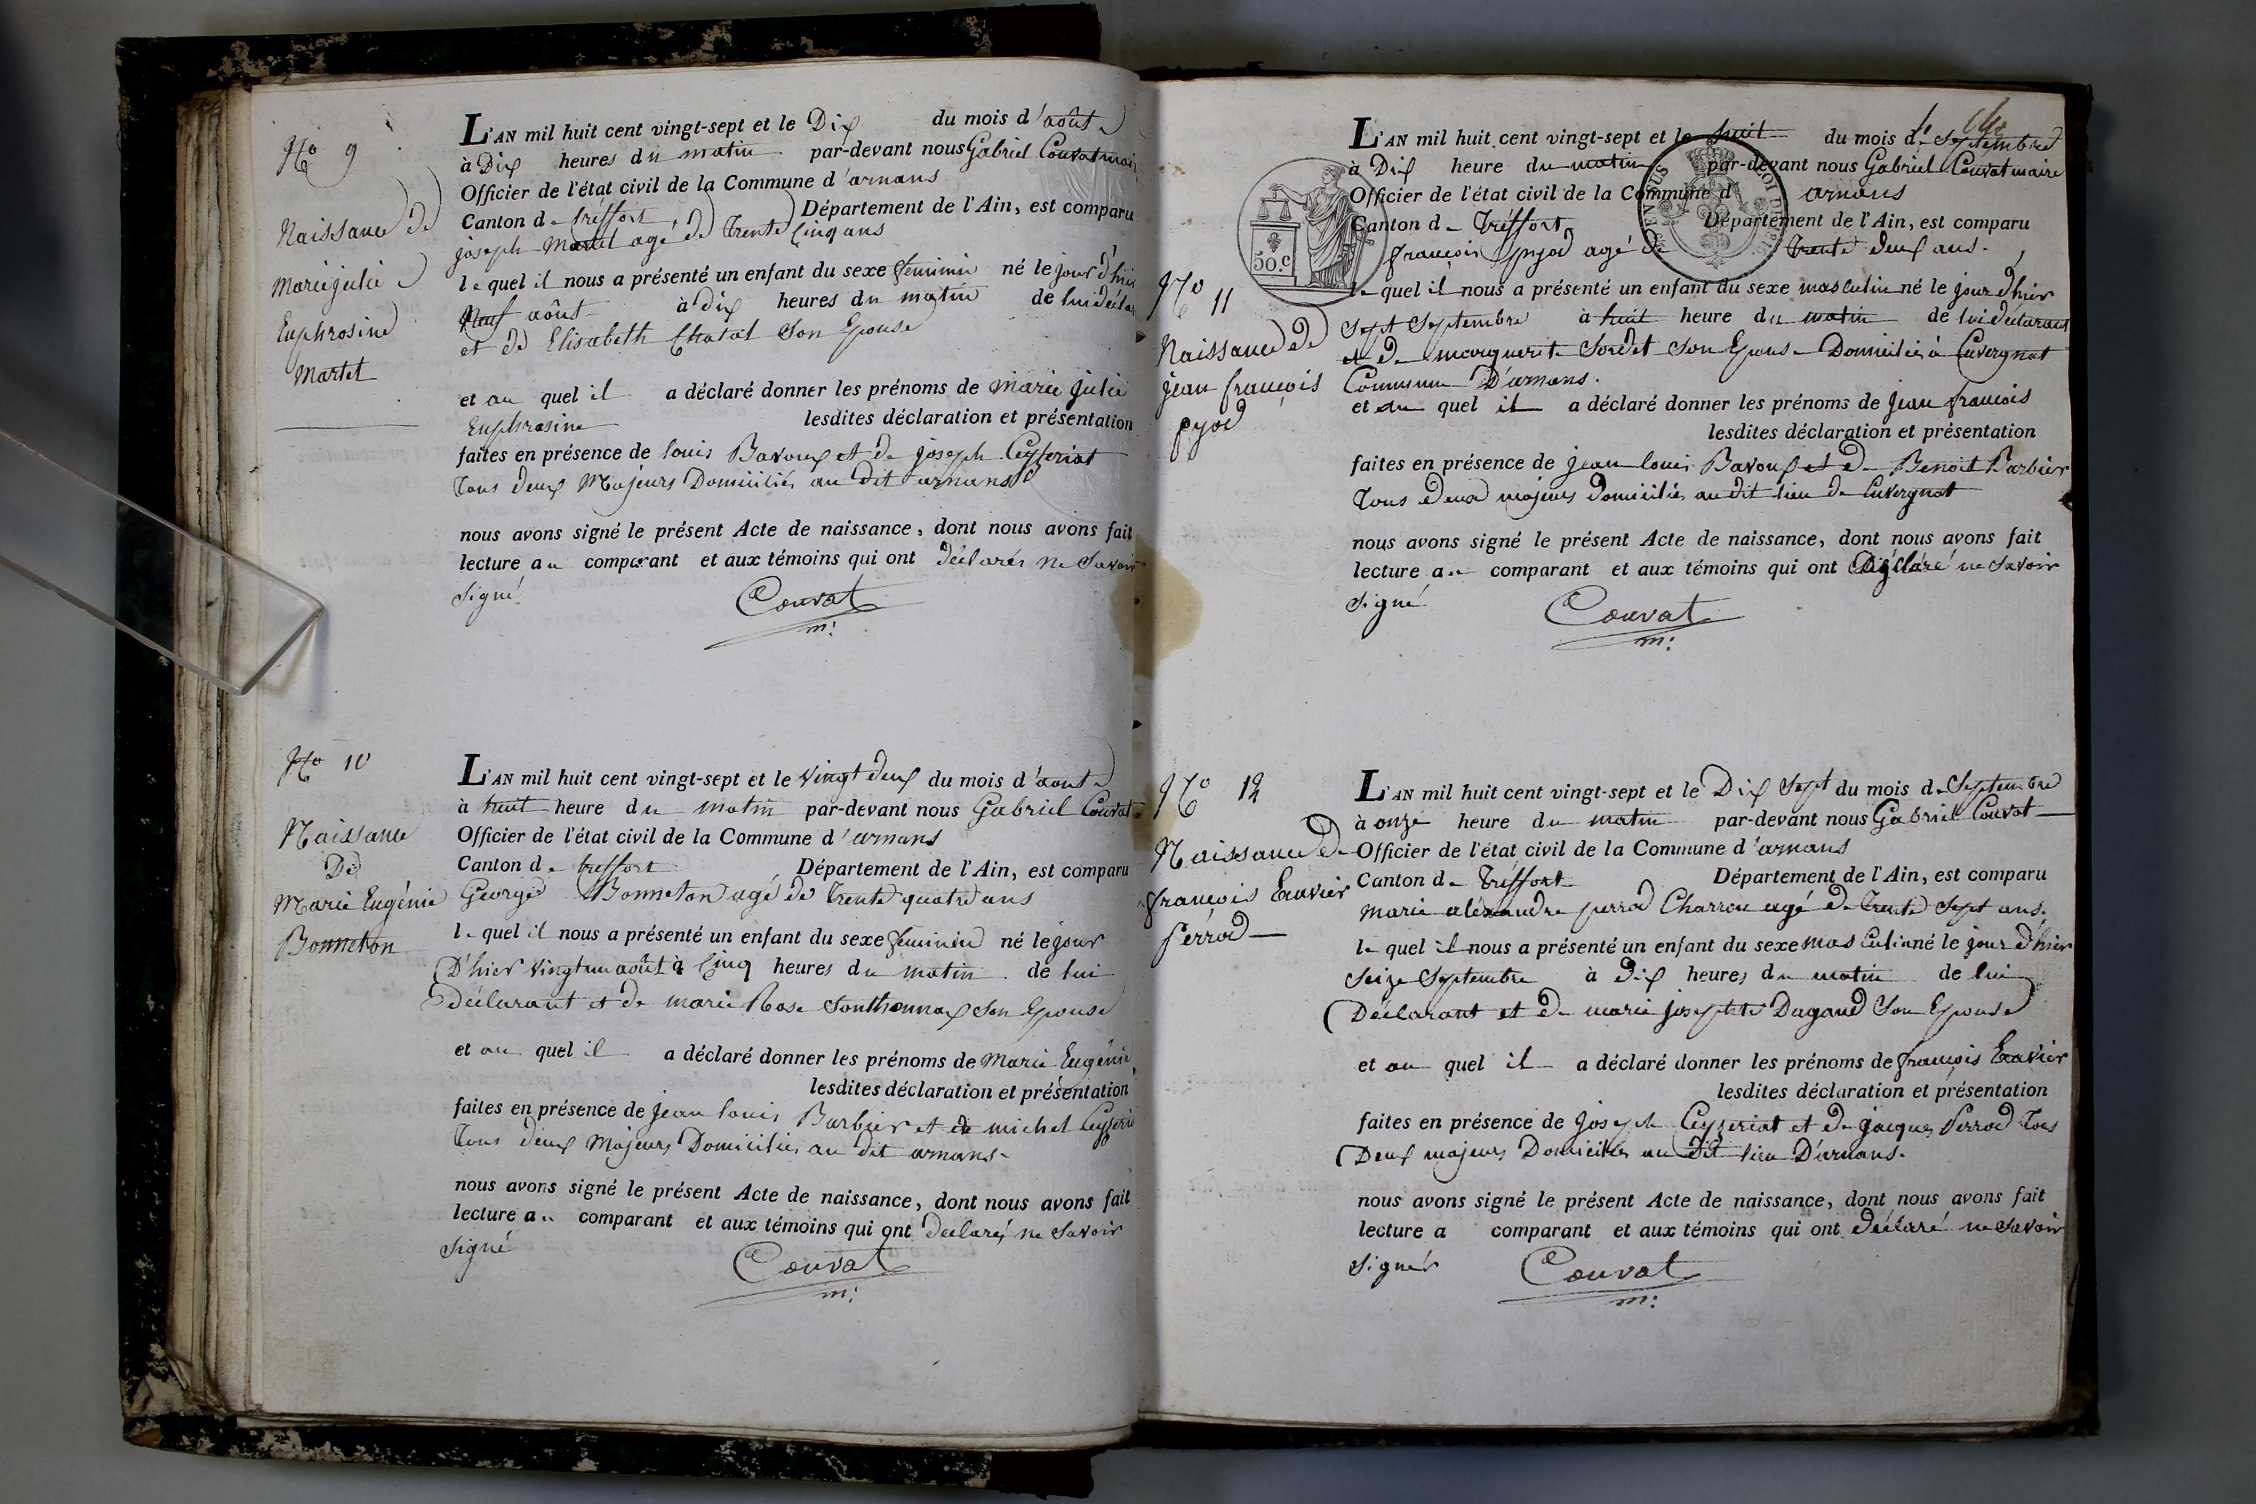 No 9
Naissance de
marie julie
Euphrosine
Martel
L'AN mil huit cent vingt-sept et le Dix du mois d'août
à Dix heures du matin par-devant nous Gabriel Couvat mair
Officier de l'état civil de la Commune d'arnans
Canton de tréffort Département de l'Ain, est comparu
joseph Martel agé de Trente Cinq ans
le quel il nous a présenté un enfant du sexe feminin né le jour d'hier
Neuf août à dix heures du matin de lui décla
et de Elisabeth Chatal Son Epouse
et au quel il a déclaré donner les prénoms de marie julie
Euphrosine lesdites déclaration et présentation
faites en présence de louis Bavoux et de joseph Ceyseriat
Tous deux Majeurs Domiciliés au dit arnans
nous avons signé le présent Acte de naissance, dont nous avons fait
lecture au comparant et aux témoins qui ont déclarés ne Savoir
Signé
Couvat
m:
No 10
Naissance
De
Marie Eugénie
Bonneton
L'AN mil huit cent vingt-sept et le vingt deux du mois d'aout
à huit heure du matin par-devant nous Gabriel Couvat
Officier de l'état civil de la Commune d'arnans
Canton de treffort Département de l'Ain, est comparu
George Bonneton agé de Trente quatre ans
le quel il nous a présenté un enfant du sexe feminin né le jour
D'hier vingt un août à Cinq heures du matin de lui
déclarant et de marie Rose Sonthonnax Son Epouse
et au quel il a déclaré donner les prénoms de Marie Eugénie
lesdites déclaration et présentation
faites en présence de jean louis Barbier et de michel Ceyseria
Tous deux Majeurs Domiciliés au dit arnans
nous avons signé le présent Acte de naissance, dont nous avons fait
lecture au comparant et aux témoins qui ont declarés ne Savoir
Signé
Couvat
m:
50.c
No 11
Naissance de
jean françois
pyod
L'AN mil huit cent vingt-sept et le huit du mois de Septembre
à Dix heure du matin par-devant nous Gabriel Couvat maire
Officier de l'état civil de la Commune d arnans
Canton de Tréffort Département de l'Ain, est comparu
françois pyod agé de trente deux ans
le quel il nous a présenté un enfant du sexe masculin né le jour d'hier
Sept Septembre à huit heure du matin de lui déclarant
et de marguerite Sordet Son Epouse Domiciliés à Cuvergnat
Commune D'arnans.
et au quel il a déclaré donner les prénoms de jean françois
lesdites déclaration et présentation
faites en présence de jean louis Bavoux et de Benoit Barbier
Tous deux majeurs domiciliés au dit lieu de Cuvergnat
nous avons signé le présent Acte de naissance, dont nous avons fait
lecture au comparant et aux témoins qui ont déclaré ne Savoir
Signé
Couvat
m:
No 12
Naissance de
françois Exavier
Perrod
L'AN mil huit cent vingt-sept et le Dix Sept du mois de Septembre
à onze heure du matin par-devant nous Gabriel Couvat
Officier de l'état civil de la Commune d'arnans
Canton de Tréffort Département de l'Ain, est comparu
Marie aléxandre perrod Charron agé de Trente Sept ans.
le quel il nous a présenté un enfant du sexe masculin né le jour d'hier
Seize Septembre à dix heures du matin de lui
Déclarant et de marie josephte Dagand Son Epouse
et au quel il a déclaré donner les prénoms de françois Exavier
lesdites déclaration et présentation
faites en présence de joseph Ceyseriat et de jacques Perrod Tous
Deux majeurs Domiciliés au dit lieu D'arnans.
nous avons signé le présent Acte de naissance, dont nous avons fait
lecture a comparant et aux témoins qui ont déclaré ne Savoir
Signér
Couvat
m: